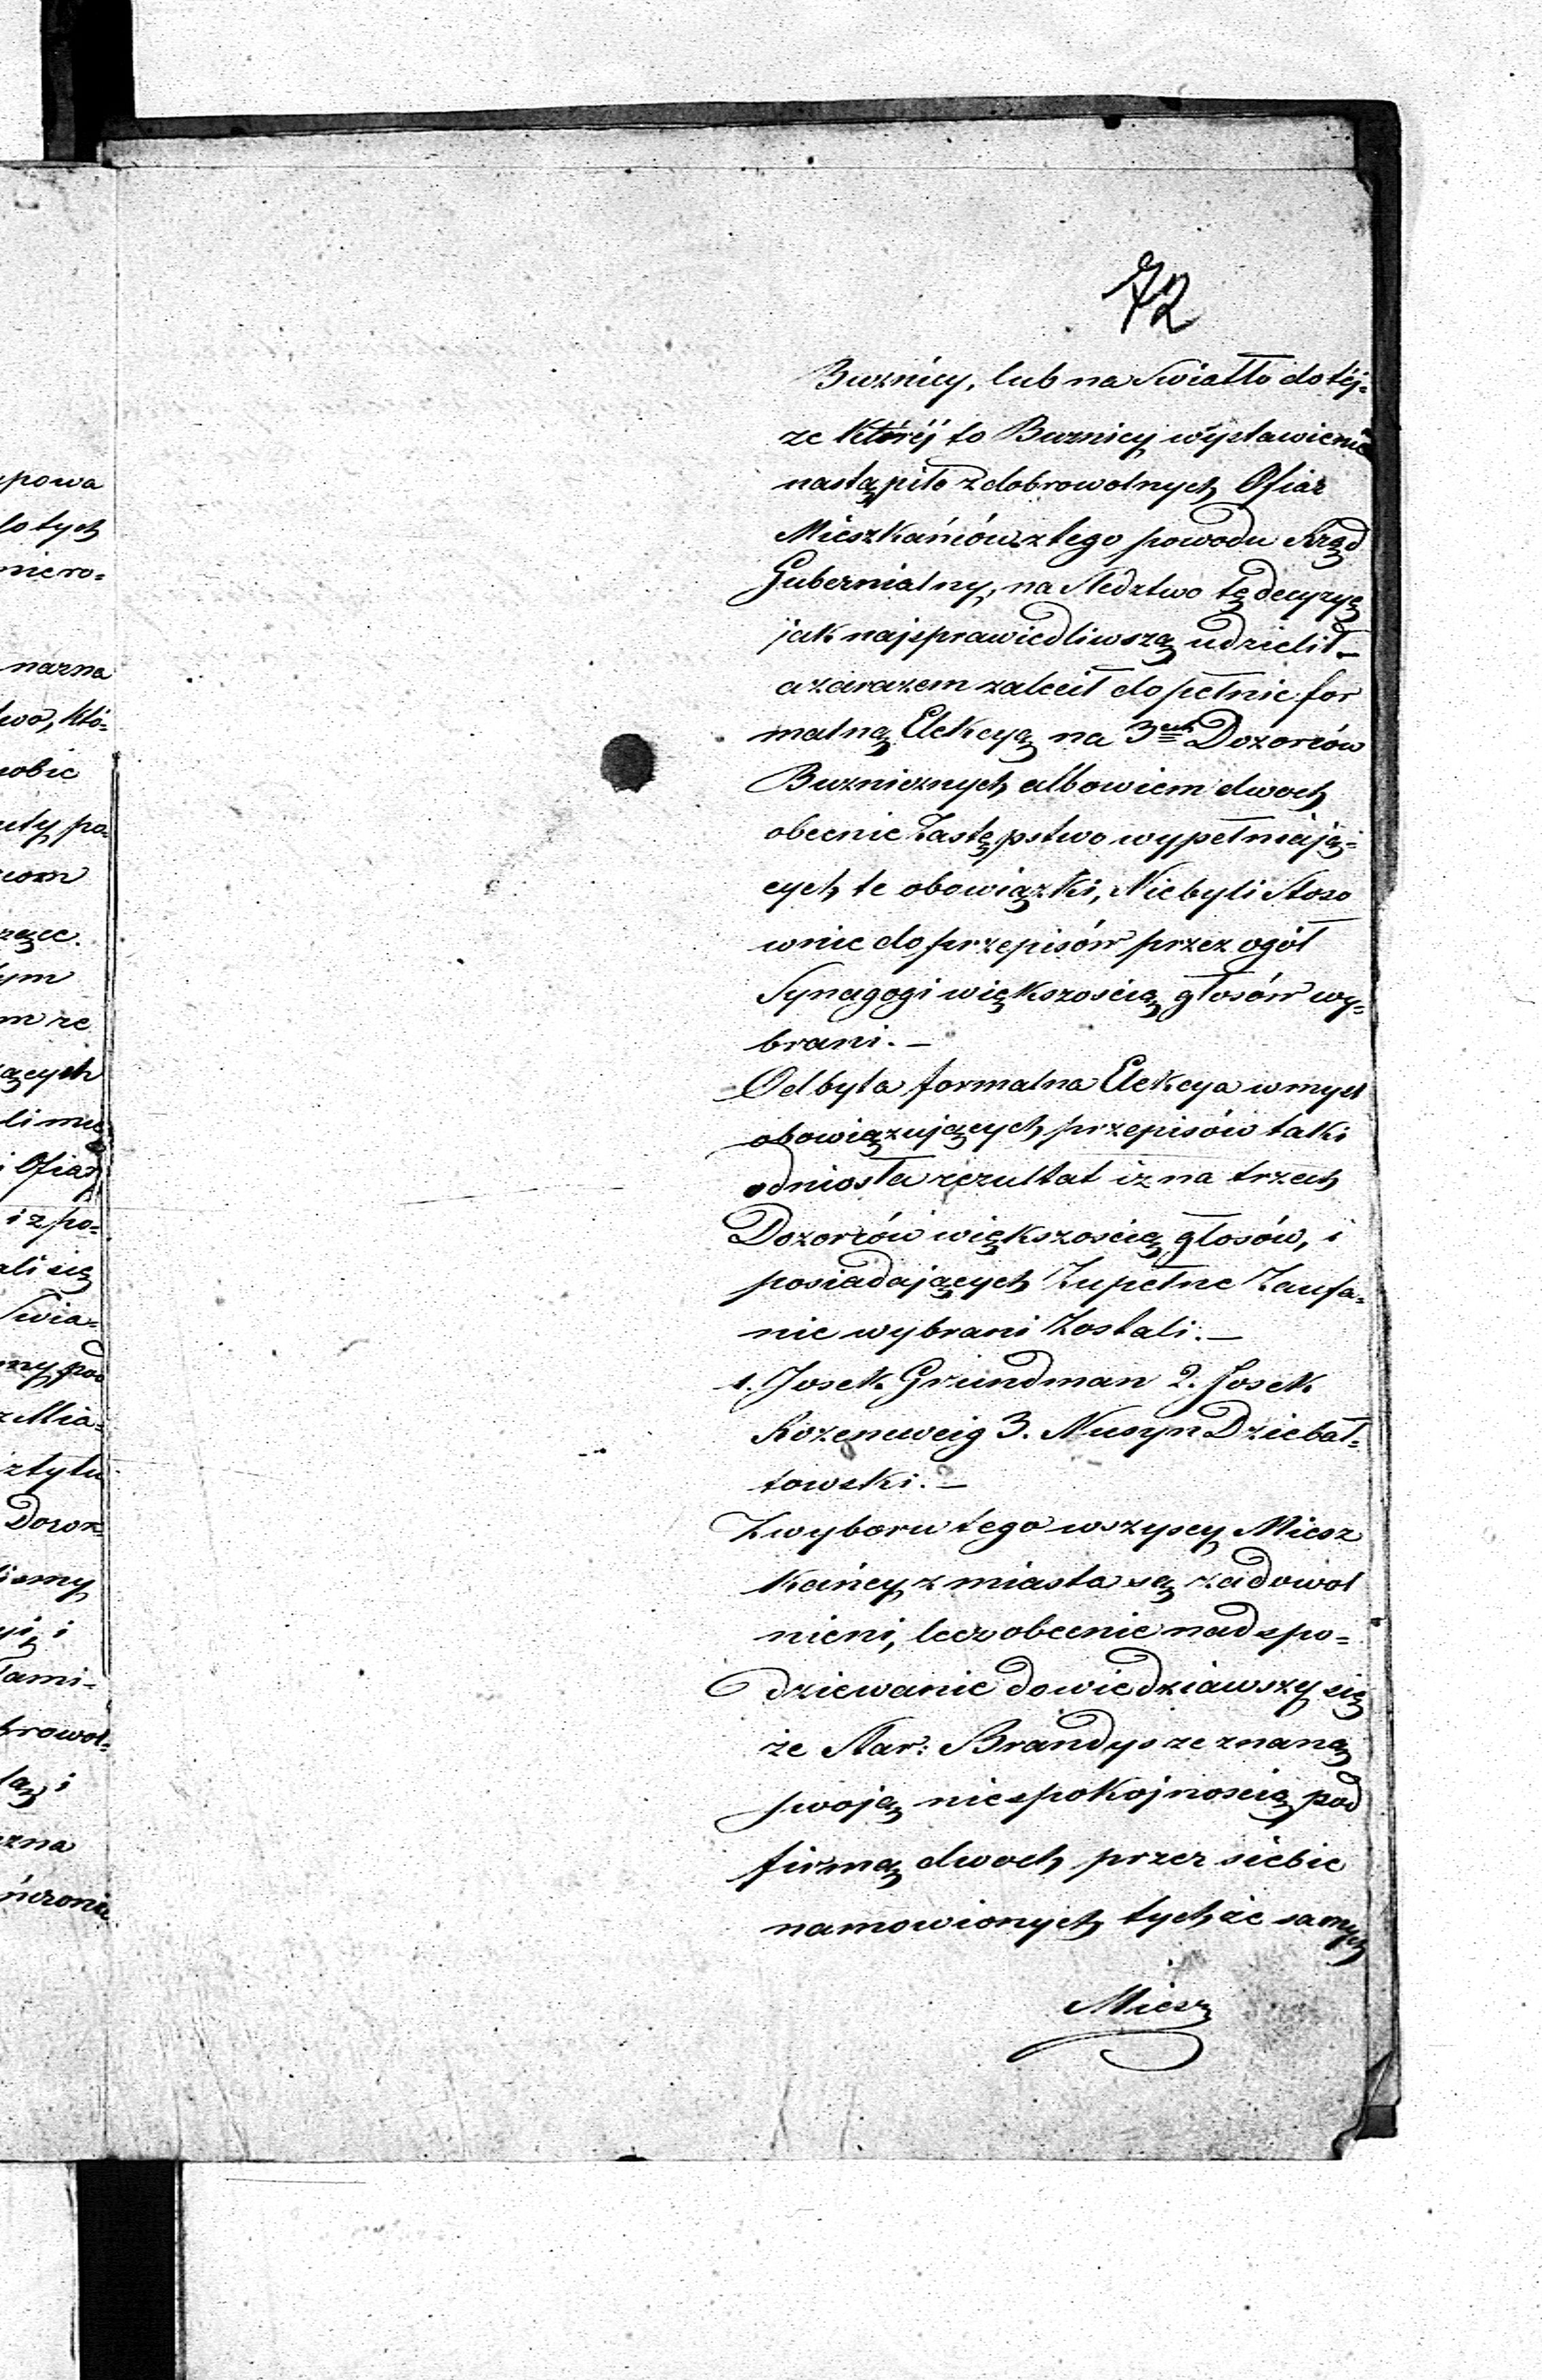 72
Buznicy, lub na Swiatło do téj=
ze któréj to Buznicy wystawienie
nastąpiło z dobrowolnych Ofiar
Mieszkańców z tego powodu Rząd
Gubernialny, na Sledztwo tę decyzyę
jak najsprawiedliwszą udzielił –
a zarazem zalecił dopełnic for
malną Elekcyą na 3ch Dozorców
Buznicznych albowiem dwoch
obecnie Zastępstwo wypełniają=
cych te obowiązki, Nie byli Stoso
wnie do przepisów przez ogół
Synagogi większoscią głosów wy=
brani. –
Odbyta formalna Elekcya w mysl
obowiązujących przepisów taki
odniosła rezultat iz na trzech
Dozorców większoscią głosów, i
posiadających Zupełne Zaufa=
nie wybrani Zostali. –
1. Josek Grundman 2. Josek
Rozencweig 3. Nusyn Dziebał=
towski. –
Z wyboru tego wszyscy Miesz
kańcy z miasta są zadowol
nieni, lecz obecnie nad spo=
dziewanie dowiedziawszy się
że Star: Brandys ze znaną
swoją niespokojnoscią pod
firmą dwoch przez siebie
namowionych tychże samych
Miesz
powa
lotych
niero=
nazna
two, któ=
robic
uty po=
iom
rzec.
ym
m ze
ących
li mu
i Ofiar
i z po=
ali się
Swia=
ny pod
z Mia=
z tytu
Dozor=
ismy
yi i
ami=
browol=
łą i
zna